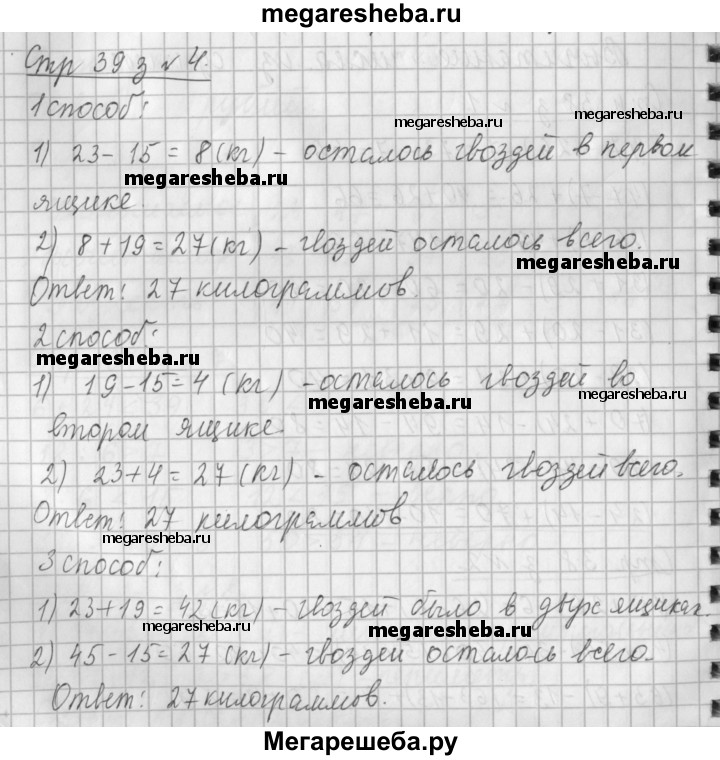 megaresheba.ru
Стр 39 з № 4.
1 способ:
megaresheba.ru
1) 23 - 15 = 8 (кг) - осталось гвоздей в первом
megaresheba.ru
ящике.
2) 8 + 19 = 27 (кг) - гвоздей осталось всего.
megaresheba.ru
Ответ: 27 килограммов.
2 способ:
megaresheba.ru
1) 19 - 15 = 4 (кг) - осталось гвоздей во
megaresheba.ru
megaresheba.ru
втором ящике.
2) 23 + 4 = 27 (кг) - осталось гвоздей всего.
Ответ: 27 килограммов
megaresheba.ru
3 способ:
1) 23 + 19 = 42 (кг) - гвоздей было в двух ящиках.
megaresheba.ru
megaresheba.ru
2) 45 - 15 = 27 (кг) - гвоздей осталось всего.
Ответ: 27 килограммов.
Мегарешеба.ру